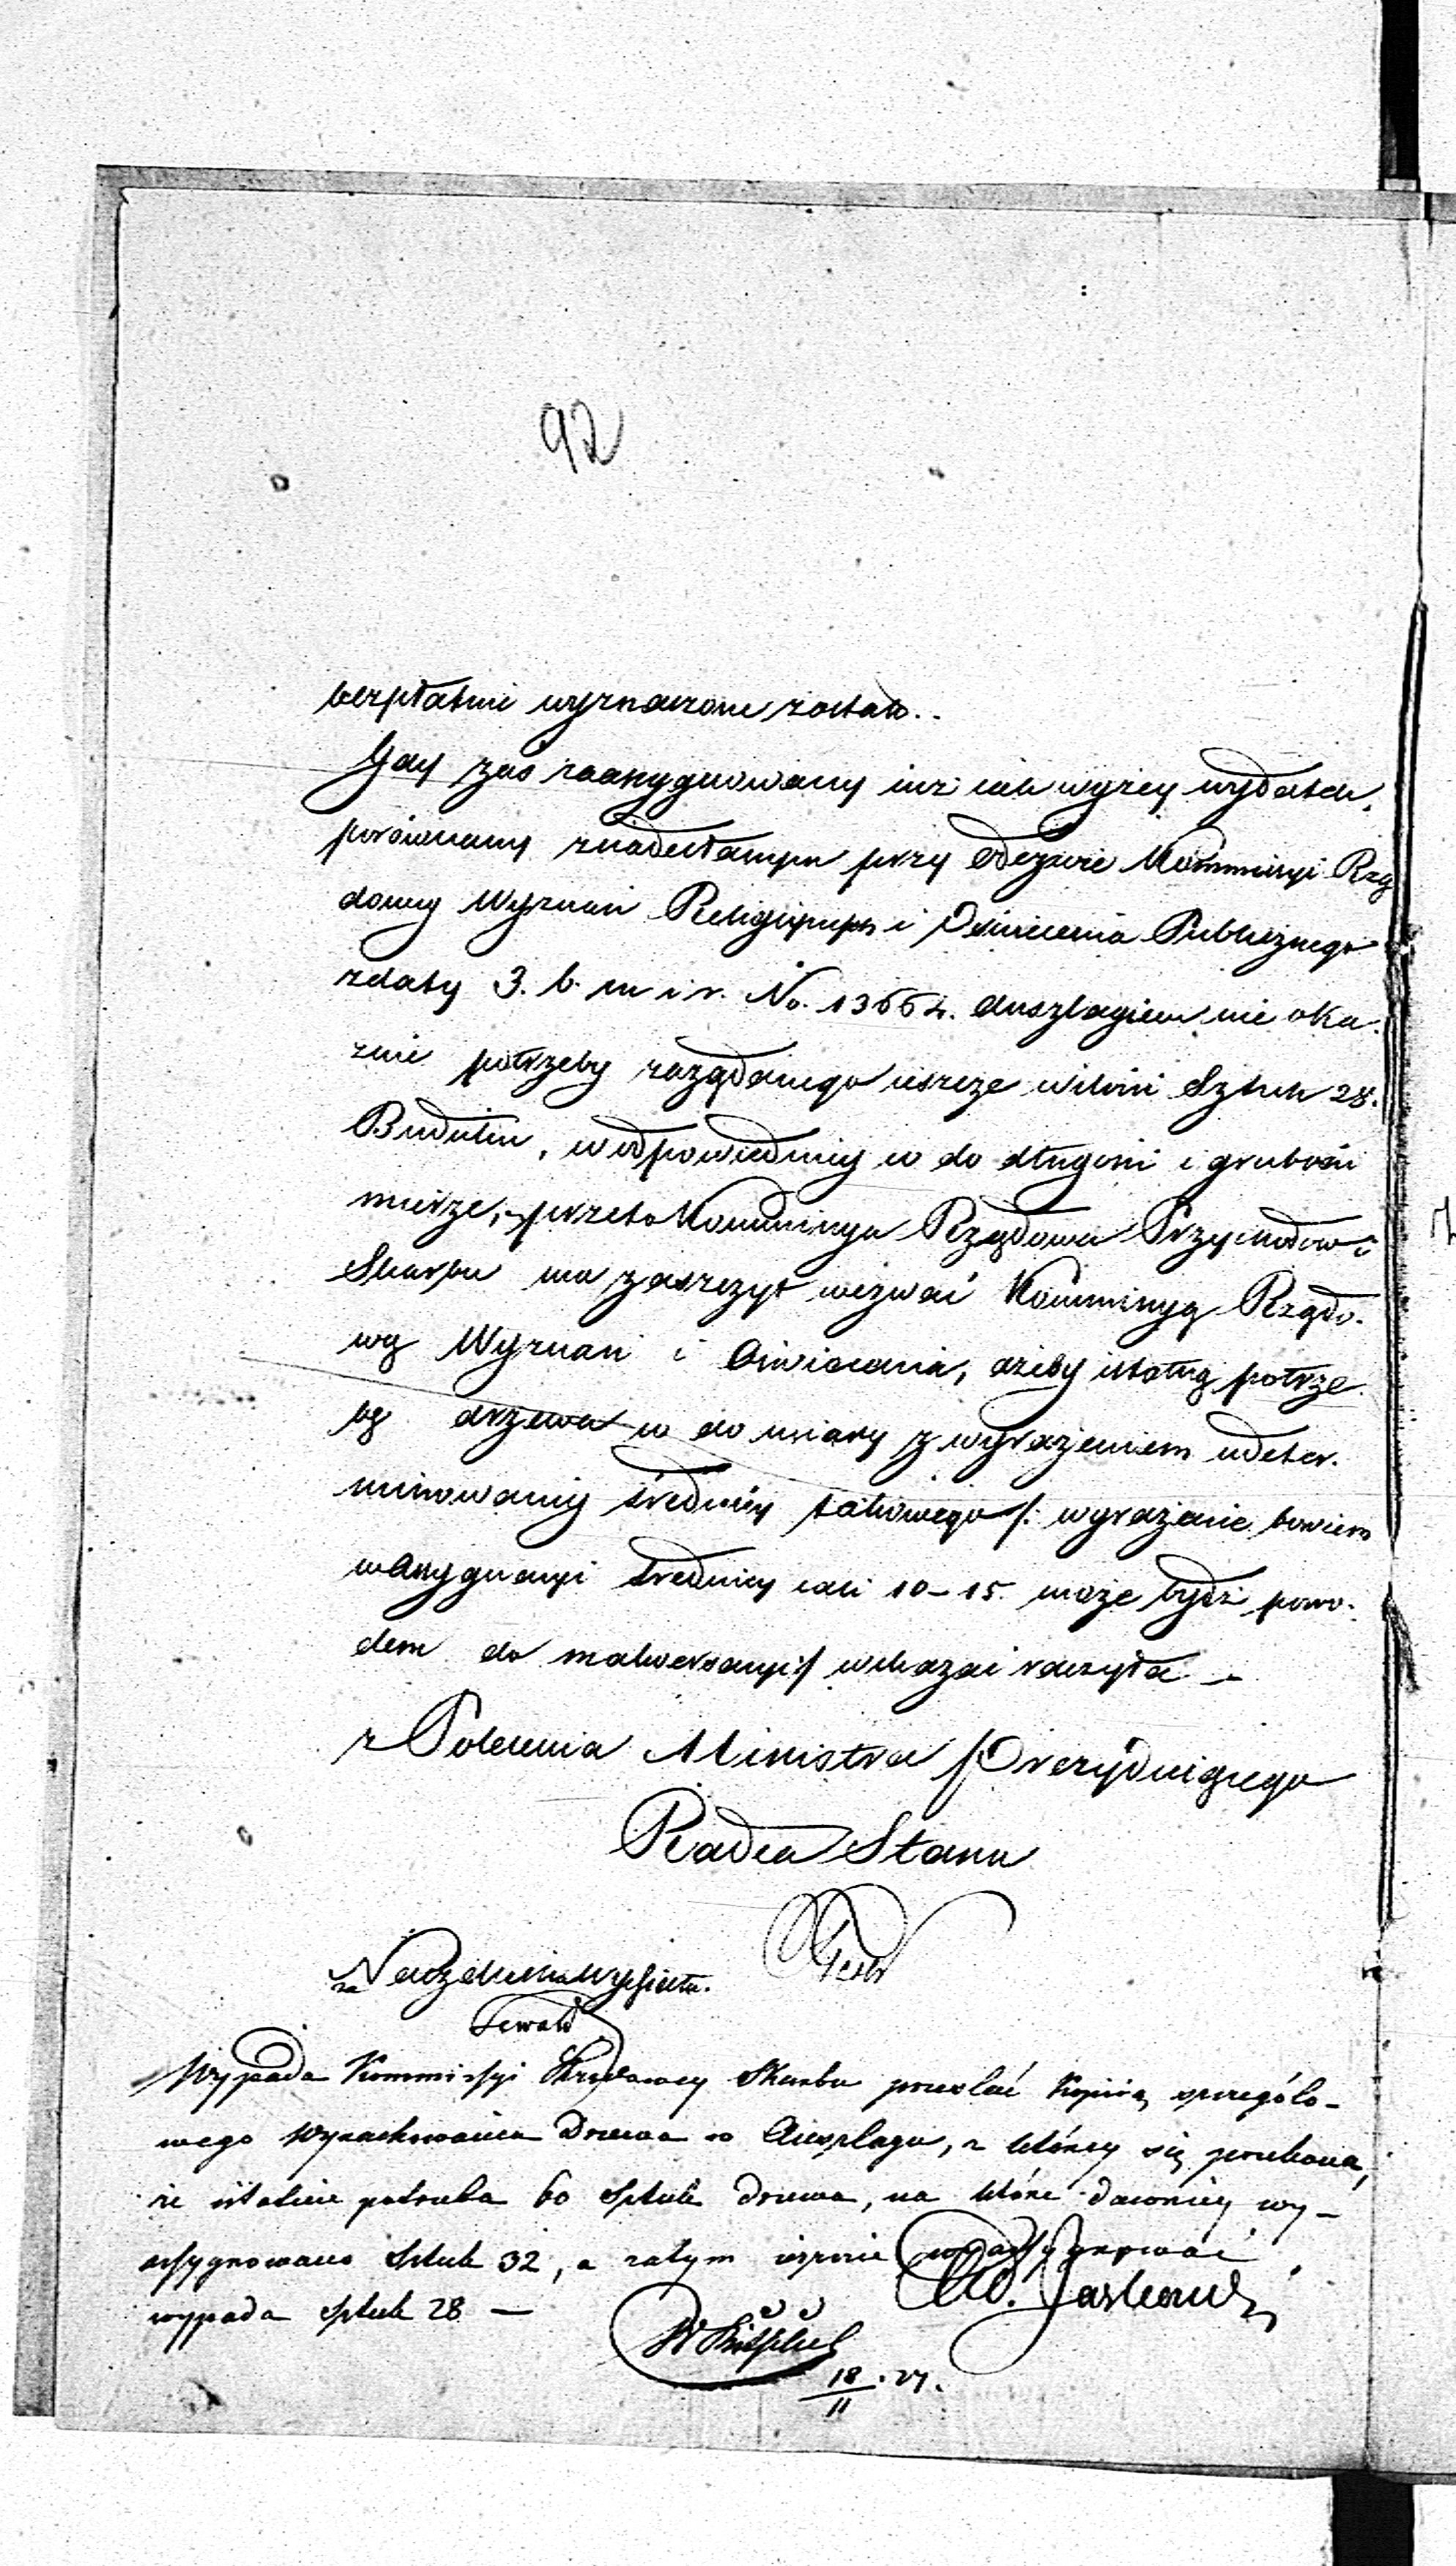 92
bezpłatnie wyznaczone zostało..
Gdy zaś zaassygnowany iuż iak wyżey wydatek,
porównany z nadesłanym przy odezwie Kommissyi Rzą
dowey Wyznań Religiynych i Oświecenia Publicznego
z daty 3. b. m i r. No. 13664. anszlagiem nie oka-
zuie potrzeby zażądanego ieszcze w ilości Sztuk 28.
Budulcu, w odpowiedniey co do długości i grubości
mierze, przeto Kommissya Rządowa Przychodów i
Skarbu ma zaszczyt wezwać Kommissyą Rządo-
wą Wyznań i Oświecenia, ażeby istotną potrze
bę drzewa co do miary z wyrażeniem udeter-
minowaney średnicy takowego /: wyrażenie bowiem
w assygnacyi średnicy cali 10-15. może bydź powo-
dem do malwersacyi :/ wskazać raczyła
z Polecenia Ministra Prezyduiącego
Radca Stanu
za Naczelnika Wydziału.
Wypada Kommissyi Rządowey Skarbu przesłać Kopią szczegóło-
wego wyrachowania Drzewa z Anszlagu, z którey się przekona,
że istotnie potrzeba 60 sztuk drzewa, na które dawniey wy-
assygnowano sztuk 32, a zatym ieszcze wyassygnować
wypada sztuk 28 —
18/11 . 27.